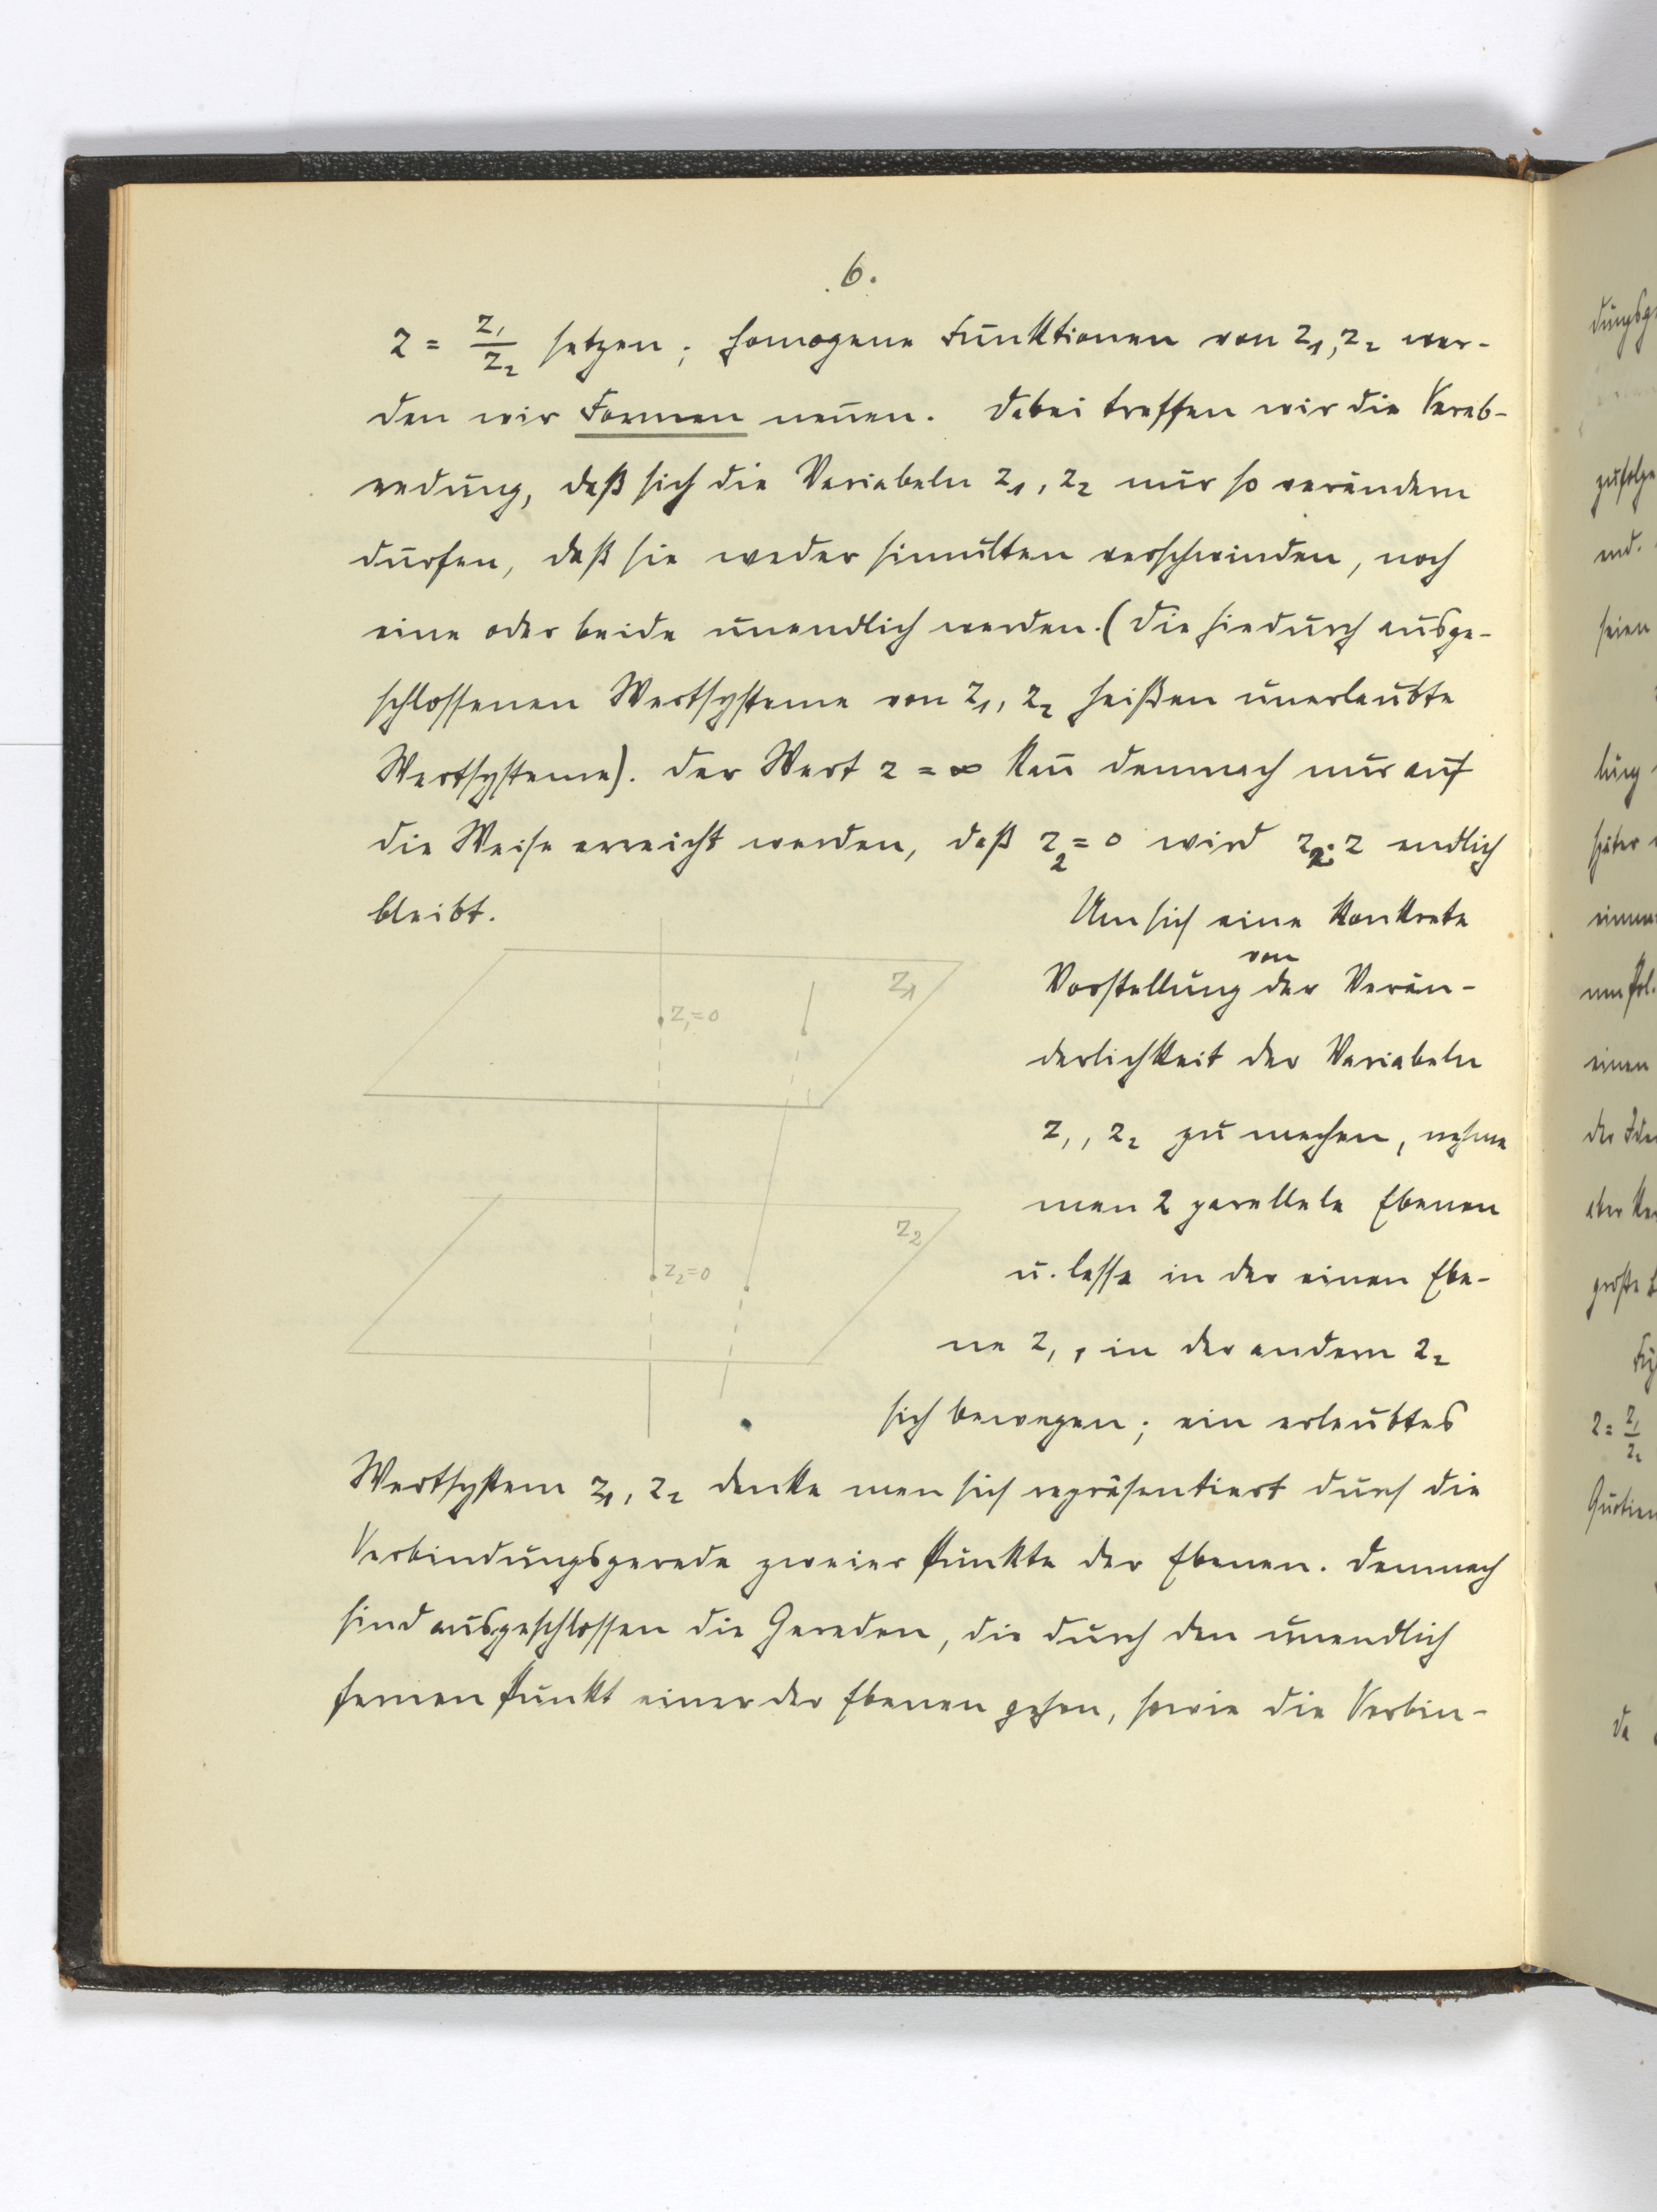 6.
z = z₁/z₂ setzen; homogene Funktionen von z₁, z₂ wer-
den wir Formen nen̄en. Dabei treffen wir die Verab-
redung, daß sich die Variabeln z₁, z₂ nur so verändern
dürfen, daß sie weder simultan verschwinden, noch
eine oder beide unendlich werden. (Die hiedurch ausge-
schlossenen Wertsysteme von z₁, z₂ heißen unerlaubte
Wertsysteme). Der Wert z = ∞ kan̄ demnach nur auf
die Weise erreicht werden, daß z₂ = 0 wird z₂·z endlich
bleibt.
Um sich eine konkrete
von
Vorstellung der Verän-
derlichkeit der Variabeln
z₁, z₂ zu machen, nehme
man 2 parallele Ebenen
u. lasse in der einen Ebe-
ne z₁, in der andern z₂
sich bewegen; ein erlaubtes
z₁
z₁=0
z₂
z₂=0
Wertsystem z₁, z₂ denke man sich repräsentiert durch die
Verbindungsgerade zweier Punkte der Ebenen. Demnach
sind ausgeschlossen die Geraden, die durch den unendlich
fernen Punkt einer der Ebenen gehen, sowie die Verbin-
zufolge
seien
später
einen
z = z₁/z₂
da